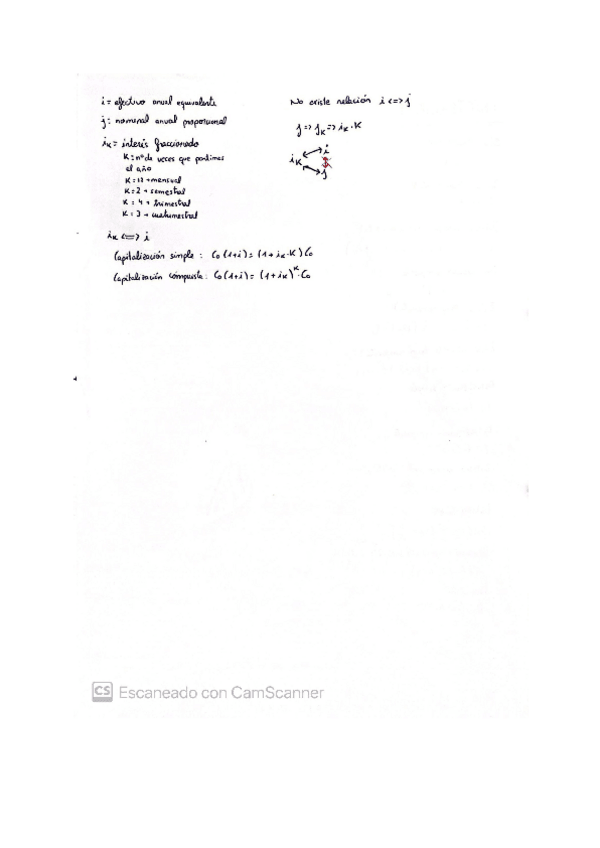 i = efectivo anual equivalente
j = nominal anual proporcional
iₖ = interés fraccionado
K = nº de veces que partimos
el año
K = 12 → mensual
K = 2 → semestral
K = 4 → trimestral
K = 3 → cuatrimestral
iₖ <=> i
Capitalización simple : C₀ (1+i) = (1 + iₖ · K) C₀
Capitalización compuesta : C₀ (1+i) = (1 + iₖ)ᴷ · C₀
No existe relación i <=> j
j => jₖ => iₖ · K
i
iₖ
j
CS Escaneado con CamScanner